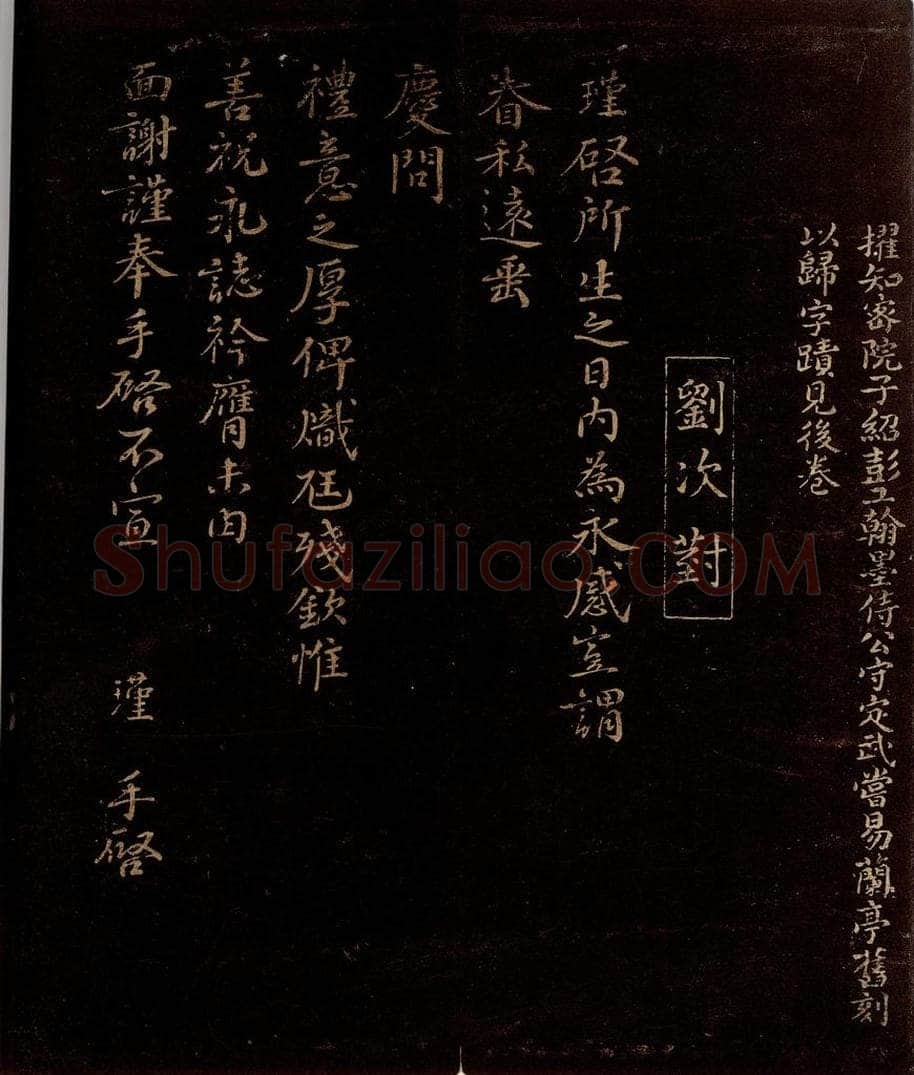 擢知密院子紹彭工翰墨侍公守定武嘗易蘭亭舊刻
以歸字蹟見後卷
劉次對
瑾啓所生之日內為永感豈謂
眷私遠垂
慶問
禮意之厚俾熾尫殘欽惟
善祝永誌衿膺未由
面謝謹奉手啓不宣
瑾 手啓
Shufaziliao.COM